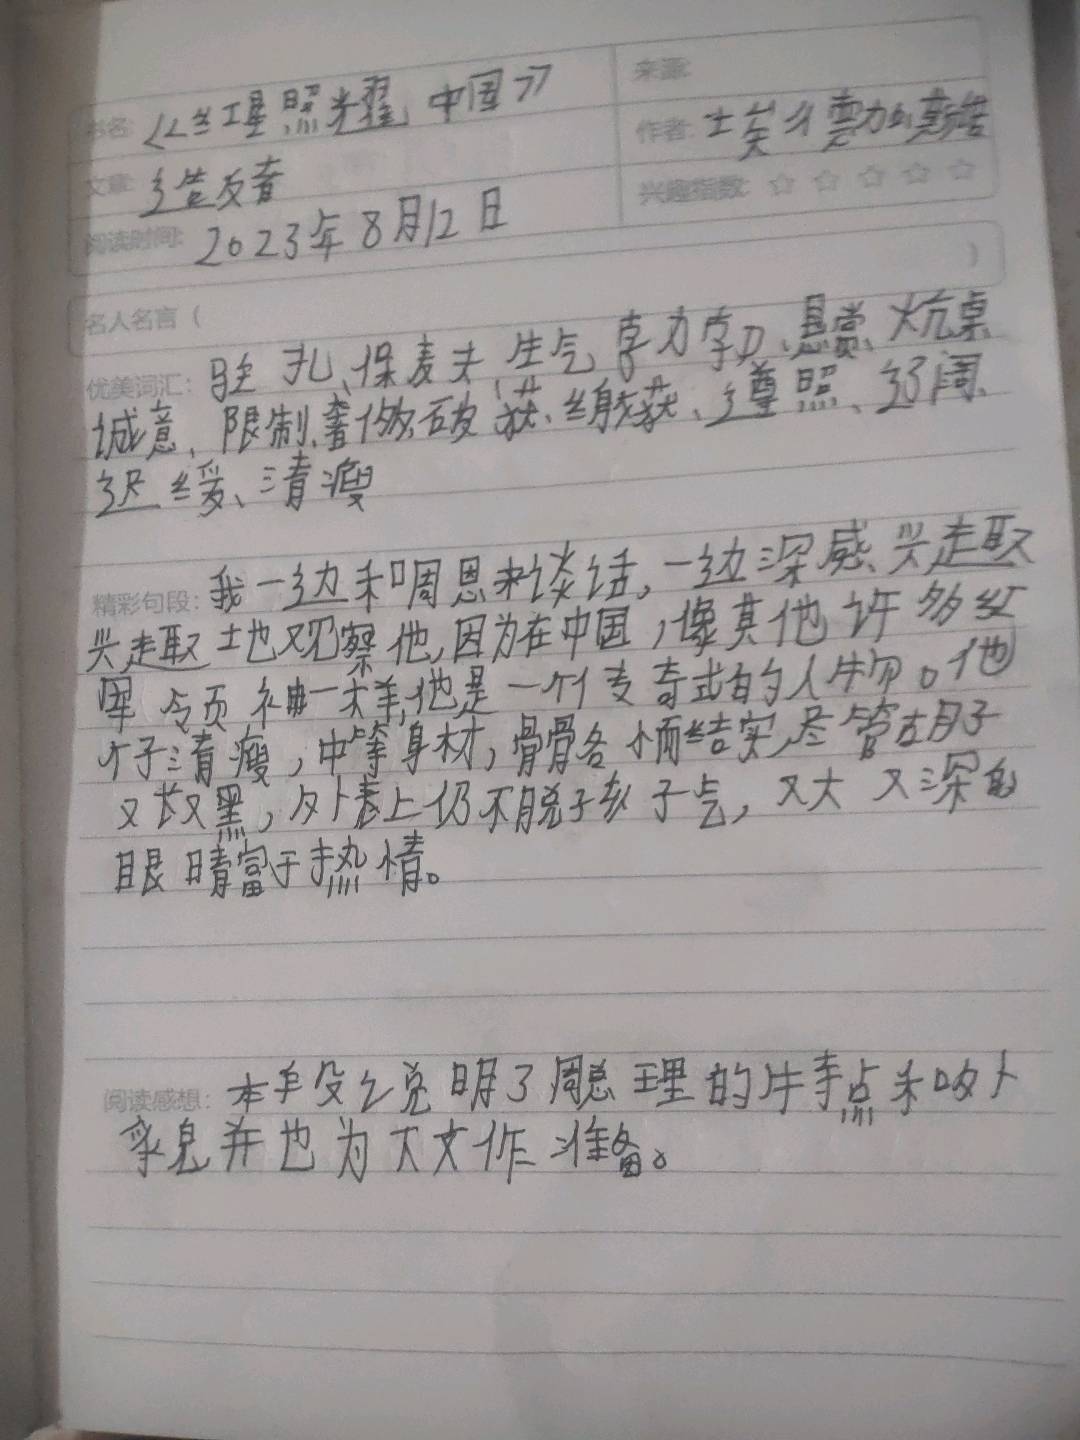 书名: 《红星照耀中国》
来源:
作者: 埃 加 斯诺
文章: 造反者
兴趣指数: ☆ ☆ ☆ ☆ ☆
阅读时间: 2023年8月12日
名人名言 ( )
优美词汇: 驻扎、保 麦夫、生气、悬赏、炕桌
诚意、限制、奢 破获、缴获、遵照、迟阔、
迟缓、清瘦
精彩句段: 我一边和周恩来谈话,一边深感兴趣
兴趣地观察他,因为在中国,像其他许多红
军领袖一样,他是一个传奇式的人物。他
个子清瘦,中等身材,骨骼 结实,尽管胡子
又长又黑,外表上仍不脱孩子气,又大又深的
眼睛富于热情。
阅读感想: 本 段 说明了周总理的特点和
并也为下文作准备。